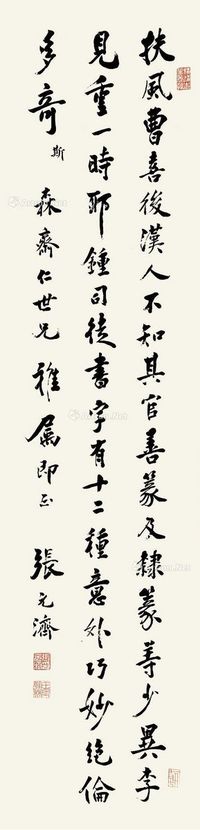 扶風曹喜後漢人不知其官善篆及隸篆等少異李
斯
見重一時耶鍾司徒書字有十二種意外巧妙絕倫
多奇
森齋仁世兄雅屬即正
張元濟